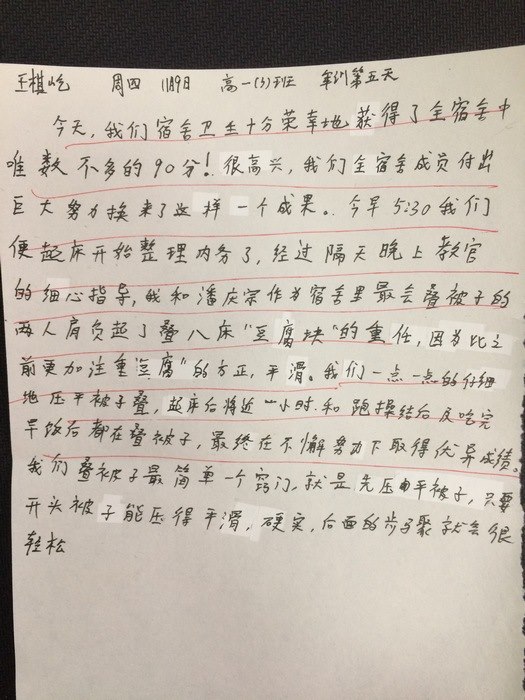 王棋屹 周四 11月9日 高一(3)班 军训第五天
今天,我们宿舍卫生十分荣幸地获得了全宿舍中
唯数不多的90分!很高兴,我们全宿舍成员付出
巨大努力换来了这样一个成果。今早5:30我们
便起床开始整理内务了,经过隔天晚上教官
的细心指导,我和潘庆宗作为宿舍里最会叠被子的
两人肩负起了叠八床"豆腐块"的重任,因为比之
前更加注重豆腐"的方正,平滑。我们一点一点的仔细
地压平被子叠,起床后将近一小时和跑操结后及吃完
早饭后都在叠被子,最终在不懈努力下取得优异成绩。
我们叠被子最简单一个窍门,就是先压平被子,只要
开头被子能压得平滑,硬实,后面的步聚就会很
轻松